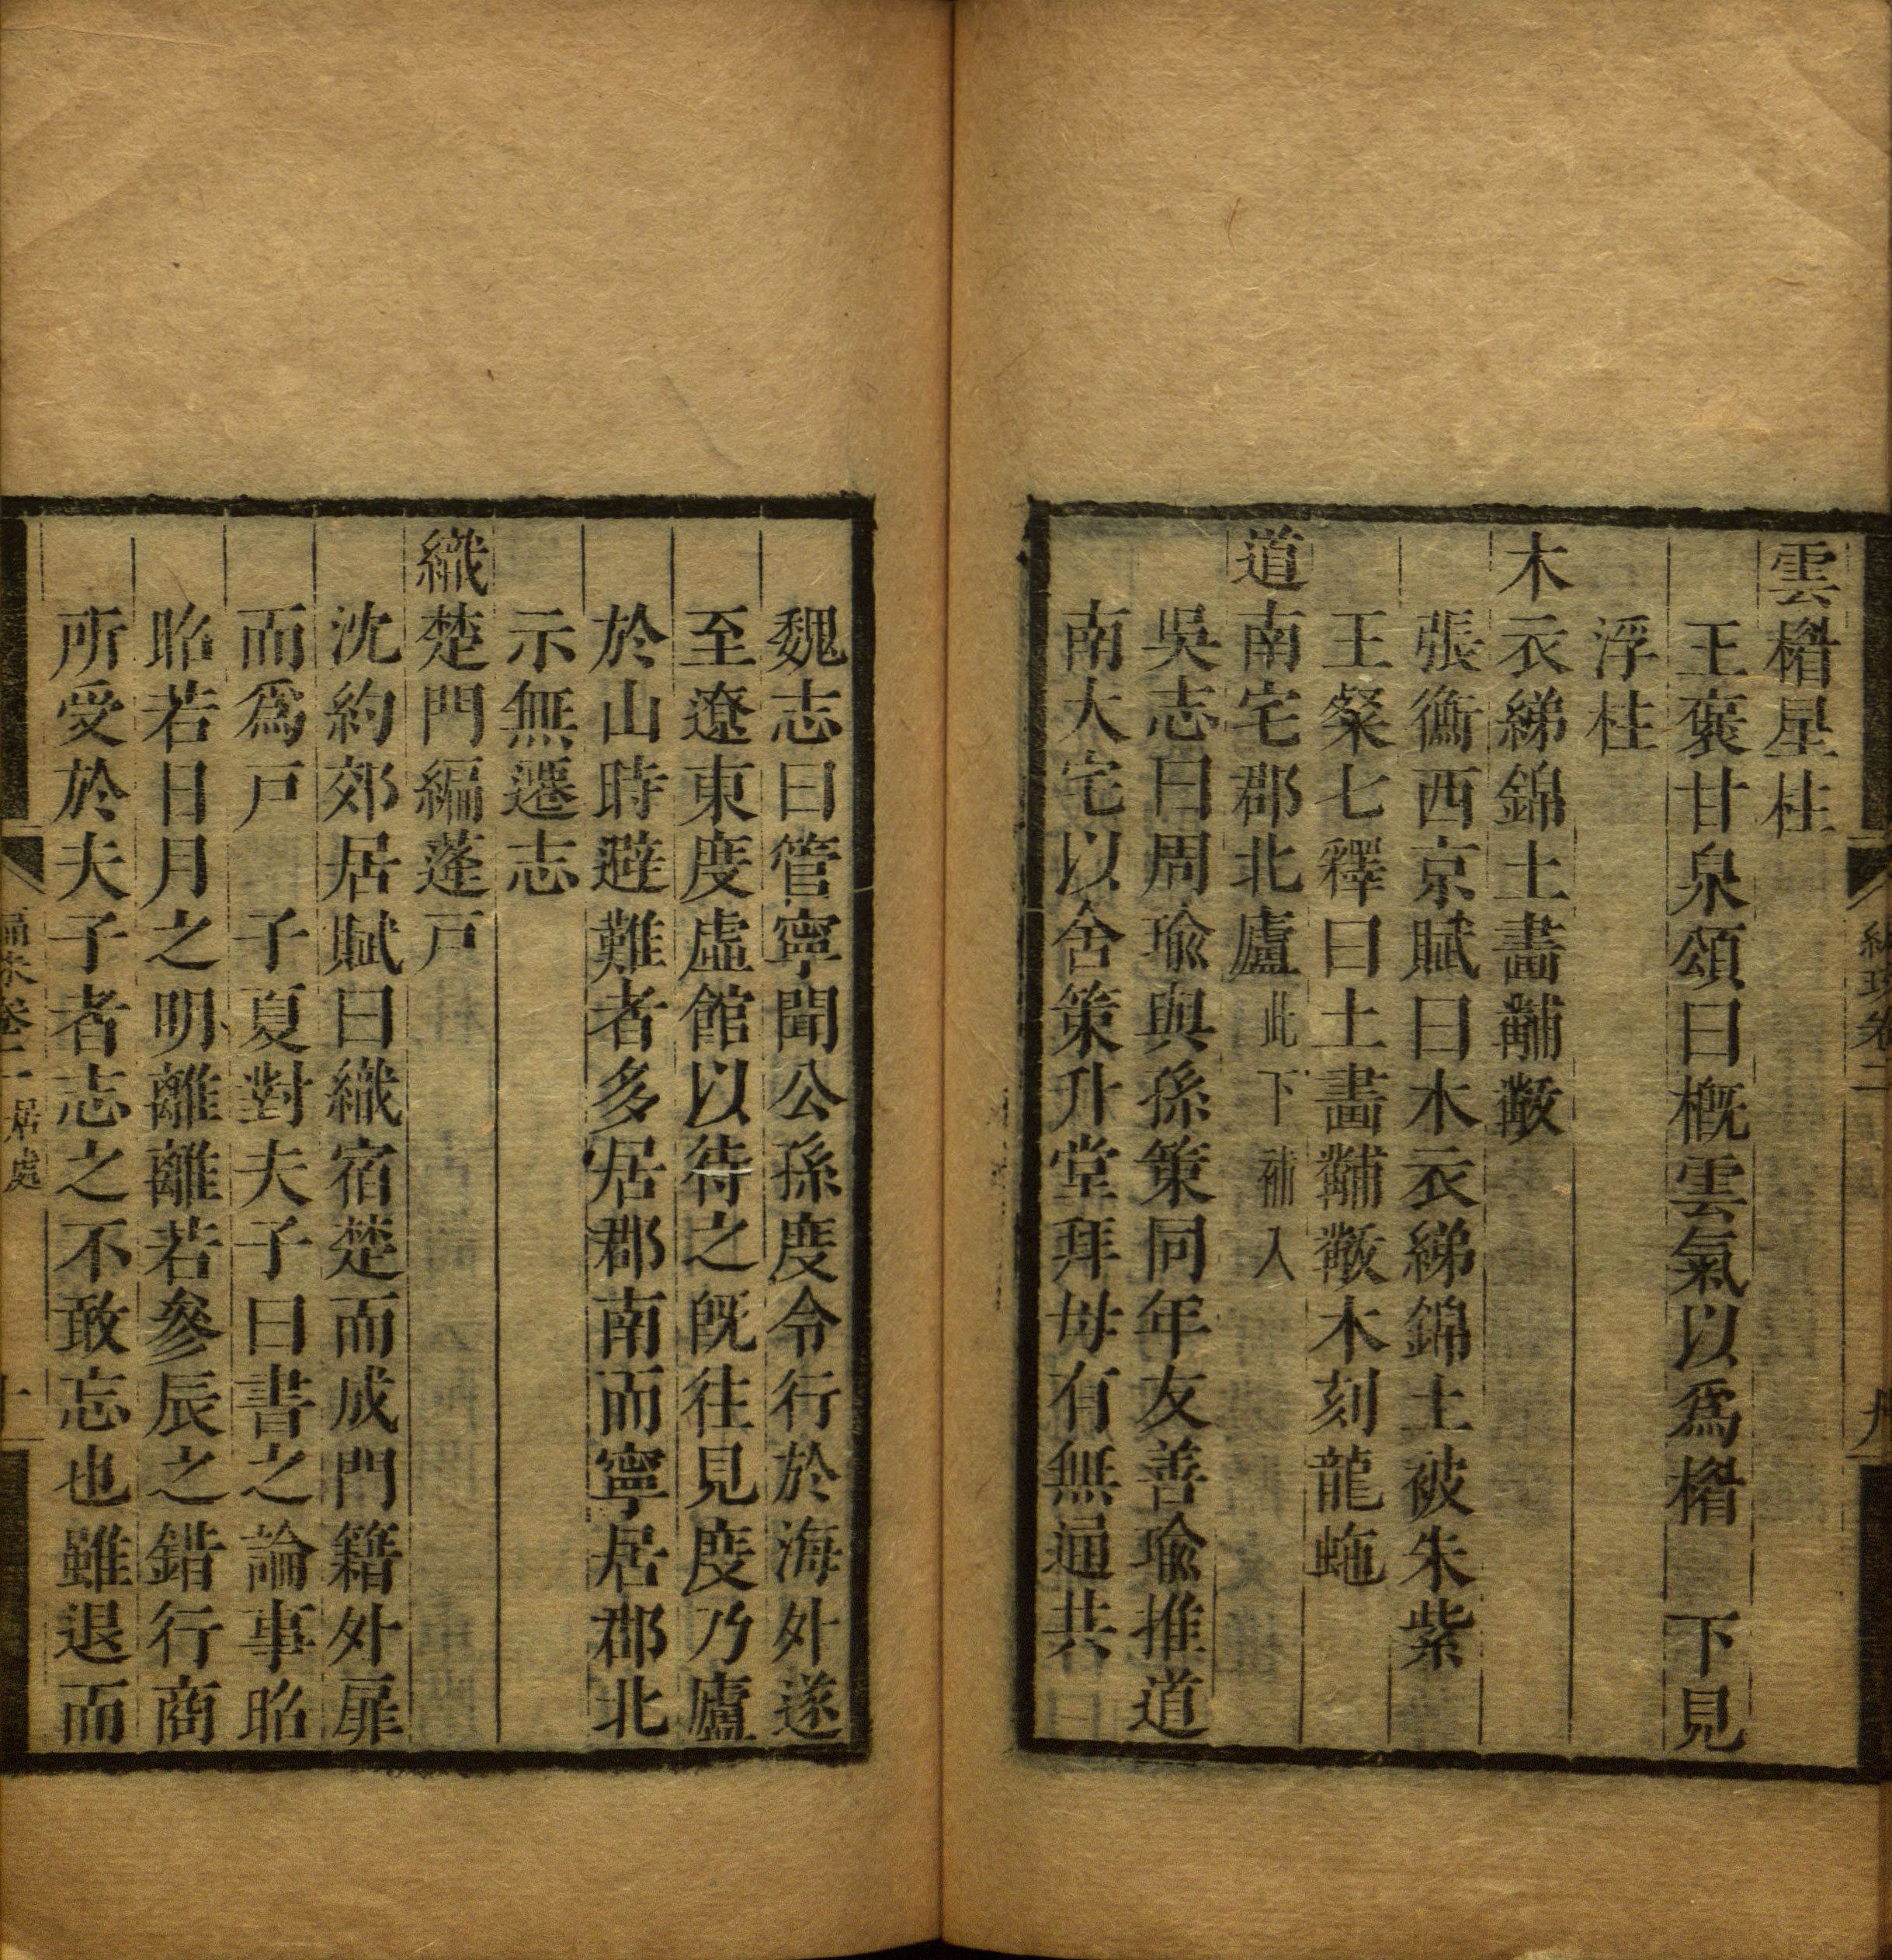 雲楣星柱
王褒甘泉頌曰概雲氣以爲楣　下見
浮柱
木衣綈錦土畫黼黻
張衡西京賦曰木衣綈錦土被朱紫
王粲七釋曰土畫黼黻木刻龍虵
道南宅郡北廬此下補入
吳志曰周瑜與孫策同年友善瑜推道
南大宅以舍策升堂拜母有無通共
魏志曰管寧聞公孫度令行於海外遂
至遼東度虛館以待之旣往見度乃廬
於山時避難者多居郡南而寧居郡北
示無遷志
織楚門編蓬戸
沈約郊居賦曰織宿楚而成門籍外扉
而爲戸　子夏對夫子曰書之論事昭
昭若日月之明離離若參辰之錯行商
所受於夫子者志之不敢忘也雖退而
編朱卷二　居處